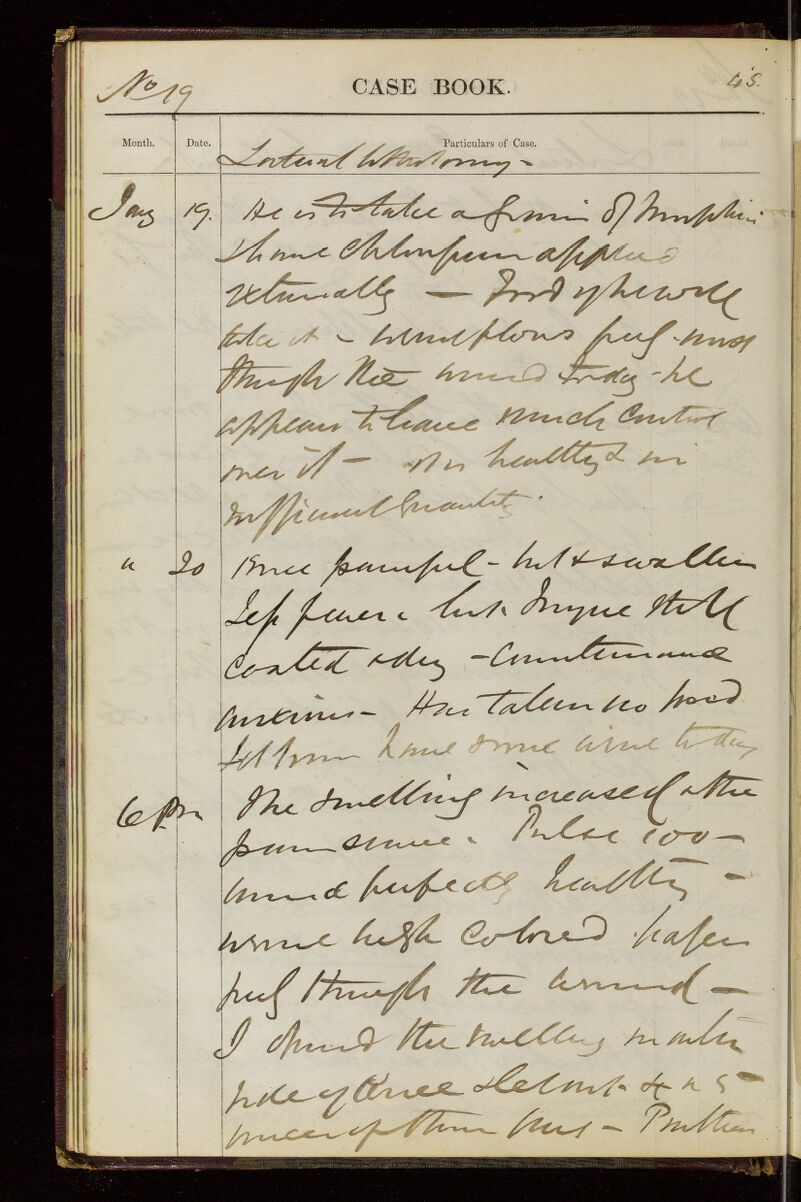 No 19
CASE BOOK.
45.
Month. Date. Particulars of Case.
Lateral Lithotomy -
Jany 19. He is to take a grain of Morphia
& have Chloroform applied
externally — Food if he will
take it - urine flows freely . most
through the wound today - he
appears to have much control
over it — it is healthy & in
sufficient quantity.
" 20 Knee painful - hot & swollen
Less fever - but tongue still
coated & dry - countenance
anxious - Has taken no food
some wine today
6 Pm The swelling increased & the
pain same. Pulse 100 —
wound perfectly healthy —
urine high colored passes
freely through the wound —
I opened the swelling
side of Knee & let out 4 or 5
ounces of thin pus —